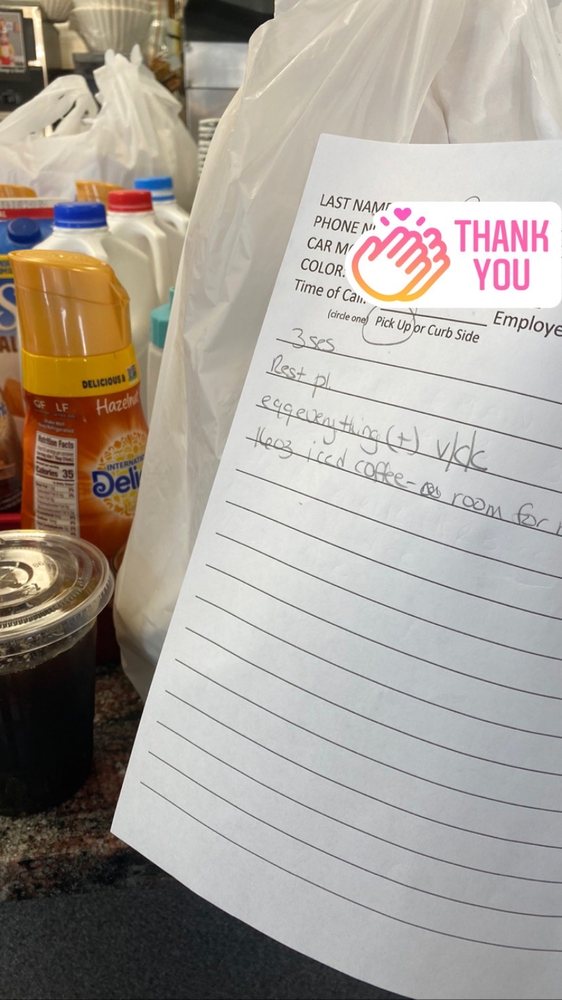 LAST NAME
PHONE N
CAR MO
COLOR:
THANK
YOU
Time of Call: Employe
(circle one) Pick Up or Curb Side
3 ses
Rest pl
egg everything (+) v/c/c
16oz iced coffee- room for
DELICIOUS
GF LF
Hazelnut
Nutrition Facts
Calories 35
INTERNATIO
Deli